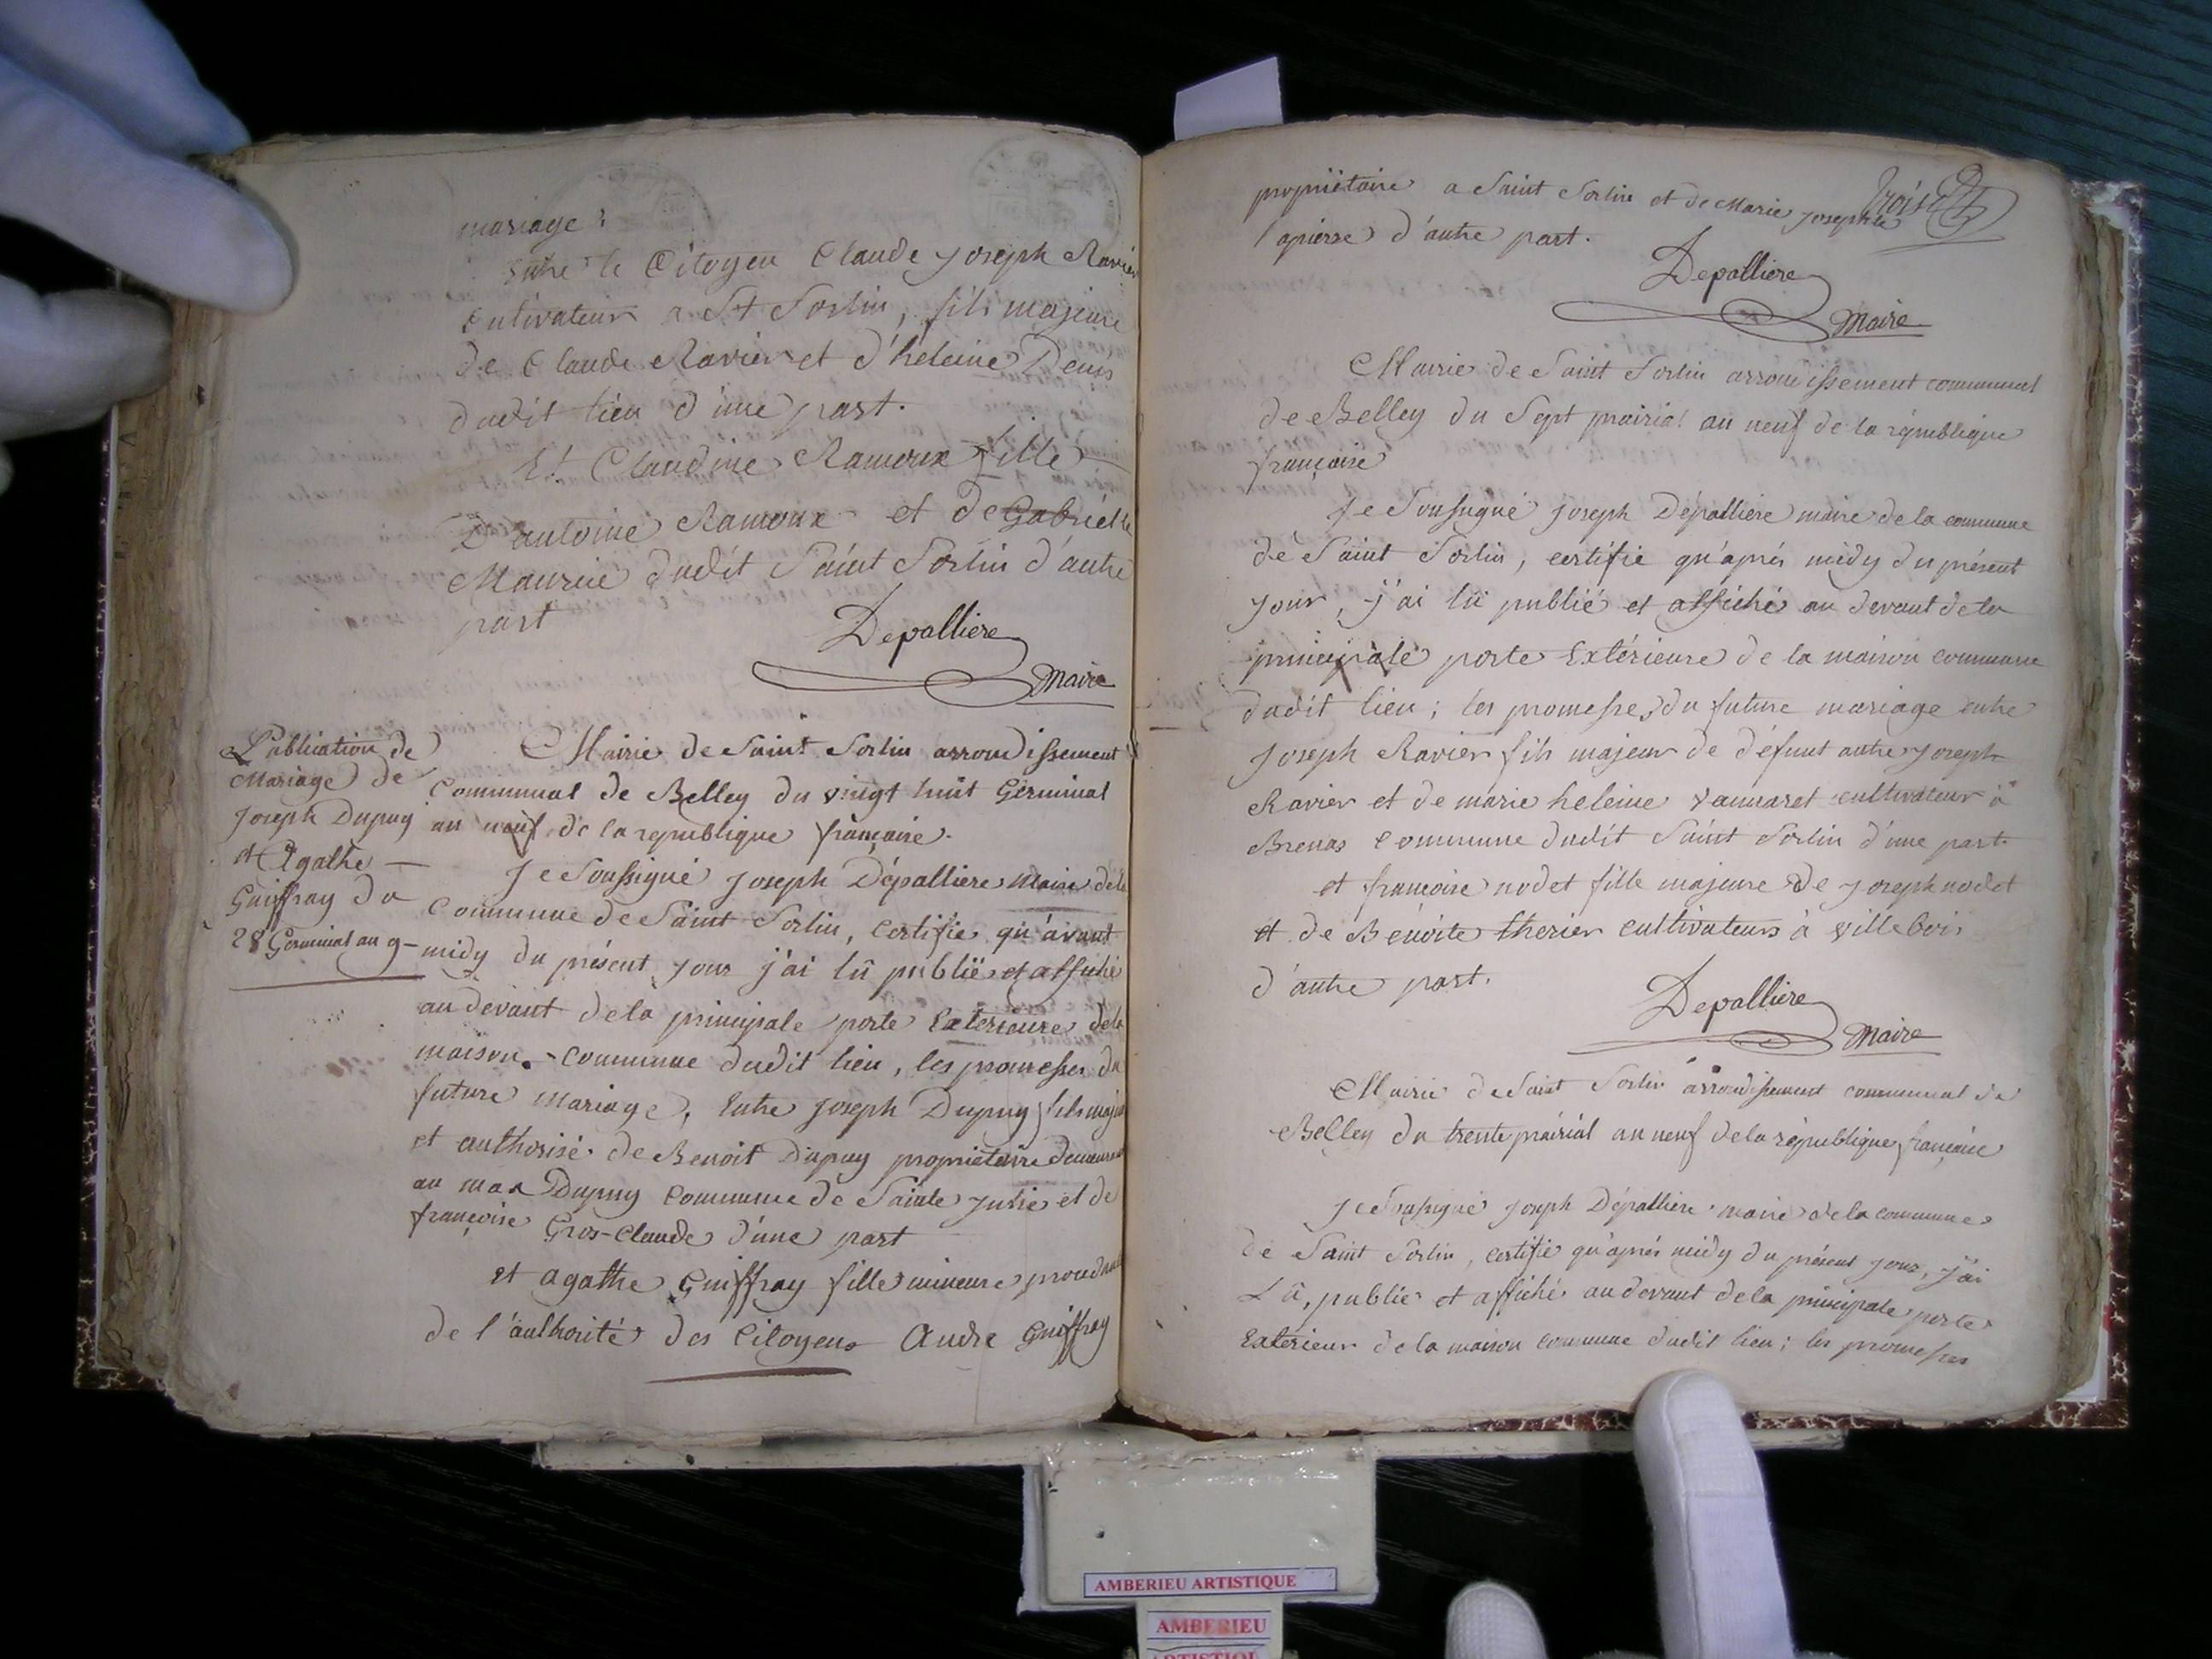 mariage :
Entre le Citoyen Claude Joseph Ravier
Cultivateur a St Sorlin, fils majeure
de Claude Ravier et d'heleine Denis
dudit lieu d'une part.
Et Claudine Ramoux fille
D'antoine Ramoux et de Gabrielle
Maurice dudit Saint Sorlin d'autre
part
Depalliere
Maire
Publication de
Mariage de
Joseph Dupuy
et Agathe —
Guiffray du
28 Germinal an 9 —
Mairie de Saint Sorlin arrondissement
Communal de Belley du vingt huit Germinal
an neuf de la republique française.
Je Soussigné Joseph Dépalliere Maire de la
Commune de Saint Sorlin, Certifie qu'avant
midy du présent jour j'ai lû publïé et affiché
au devant de la principale porte Exterieure de la
maison commune dudit lieu, les promesses du
future Mariage, Entre Joseph Dupuy fils majeur
et authorisé de Benoit Dupuy propriétaire demeurant
au mas Dupuy Commune de Sainte Julie et de
françoise Gros-Claude d'une part
et agathe Guiffray fille mineure
de l'authorité des Citoyens André Guiffray
propriètaire a Saint Sorlin et de Marie Josephte
lapierre d'autre part.
trois
Depalliere
Maire
Mairie de Saint Sorlin arrondissement communal
de Belley du Sept prairial an neuf de la république
française
Je Soussigné Joseph Dépalliere maire de la commune
de Saint Sorlin, certifie qu'aprés midy du présent
jour, j'ai lû publié et affiché au devant de la
principale porte Extérieure de la maison commune
dudit lieu ; les promesses du future mariage entre
Joseph Ravier fils majeur de défunt autre Joseph
Ravier et de marie heleine vannaret cultivateur à
Brenas Commune dudit Saint Sorlin d'une part.
et françoise nodet fille majeure de Joseph nodet
et de Benoite therier cultivateurs à villebois
d'autre part.
Depalliere
Maire
Mairie de Saint Sorlin arrondissement communal de
Belley du trente prairial an neuf de la république française
Je Soussigné Joseph Dépalliere maire de la commune
de Saint Sorlin, certifie qu'aprés midy du présent jour, j'ai
Lû, publié et affiché au devant de la principale porte
Exterieur de la maison commune dudit lieu ; les promesses
AMBERIEU ARTISTIQUE
AMBERIEU
ARTISTIQUE